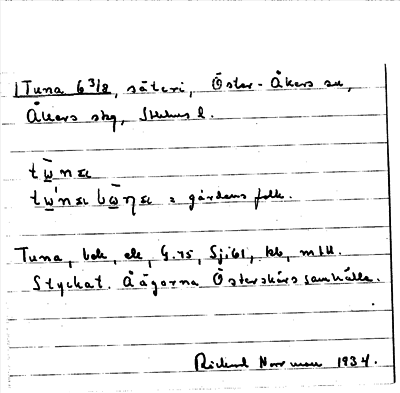 Tuna 6 3/8, säteri, Öster-Åkers sn,
Åkers skg, Sthlms l.
tω̄næ
tω̄'næ bω̄ηæ = gårdens folk.
Tuna, bok, ek, G.75, Sj:61, kb, mtl.
Styckat. Äägorna Österskärs samhälle.
Rickard Norrman 1934.